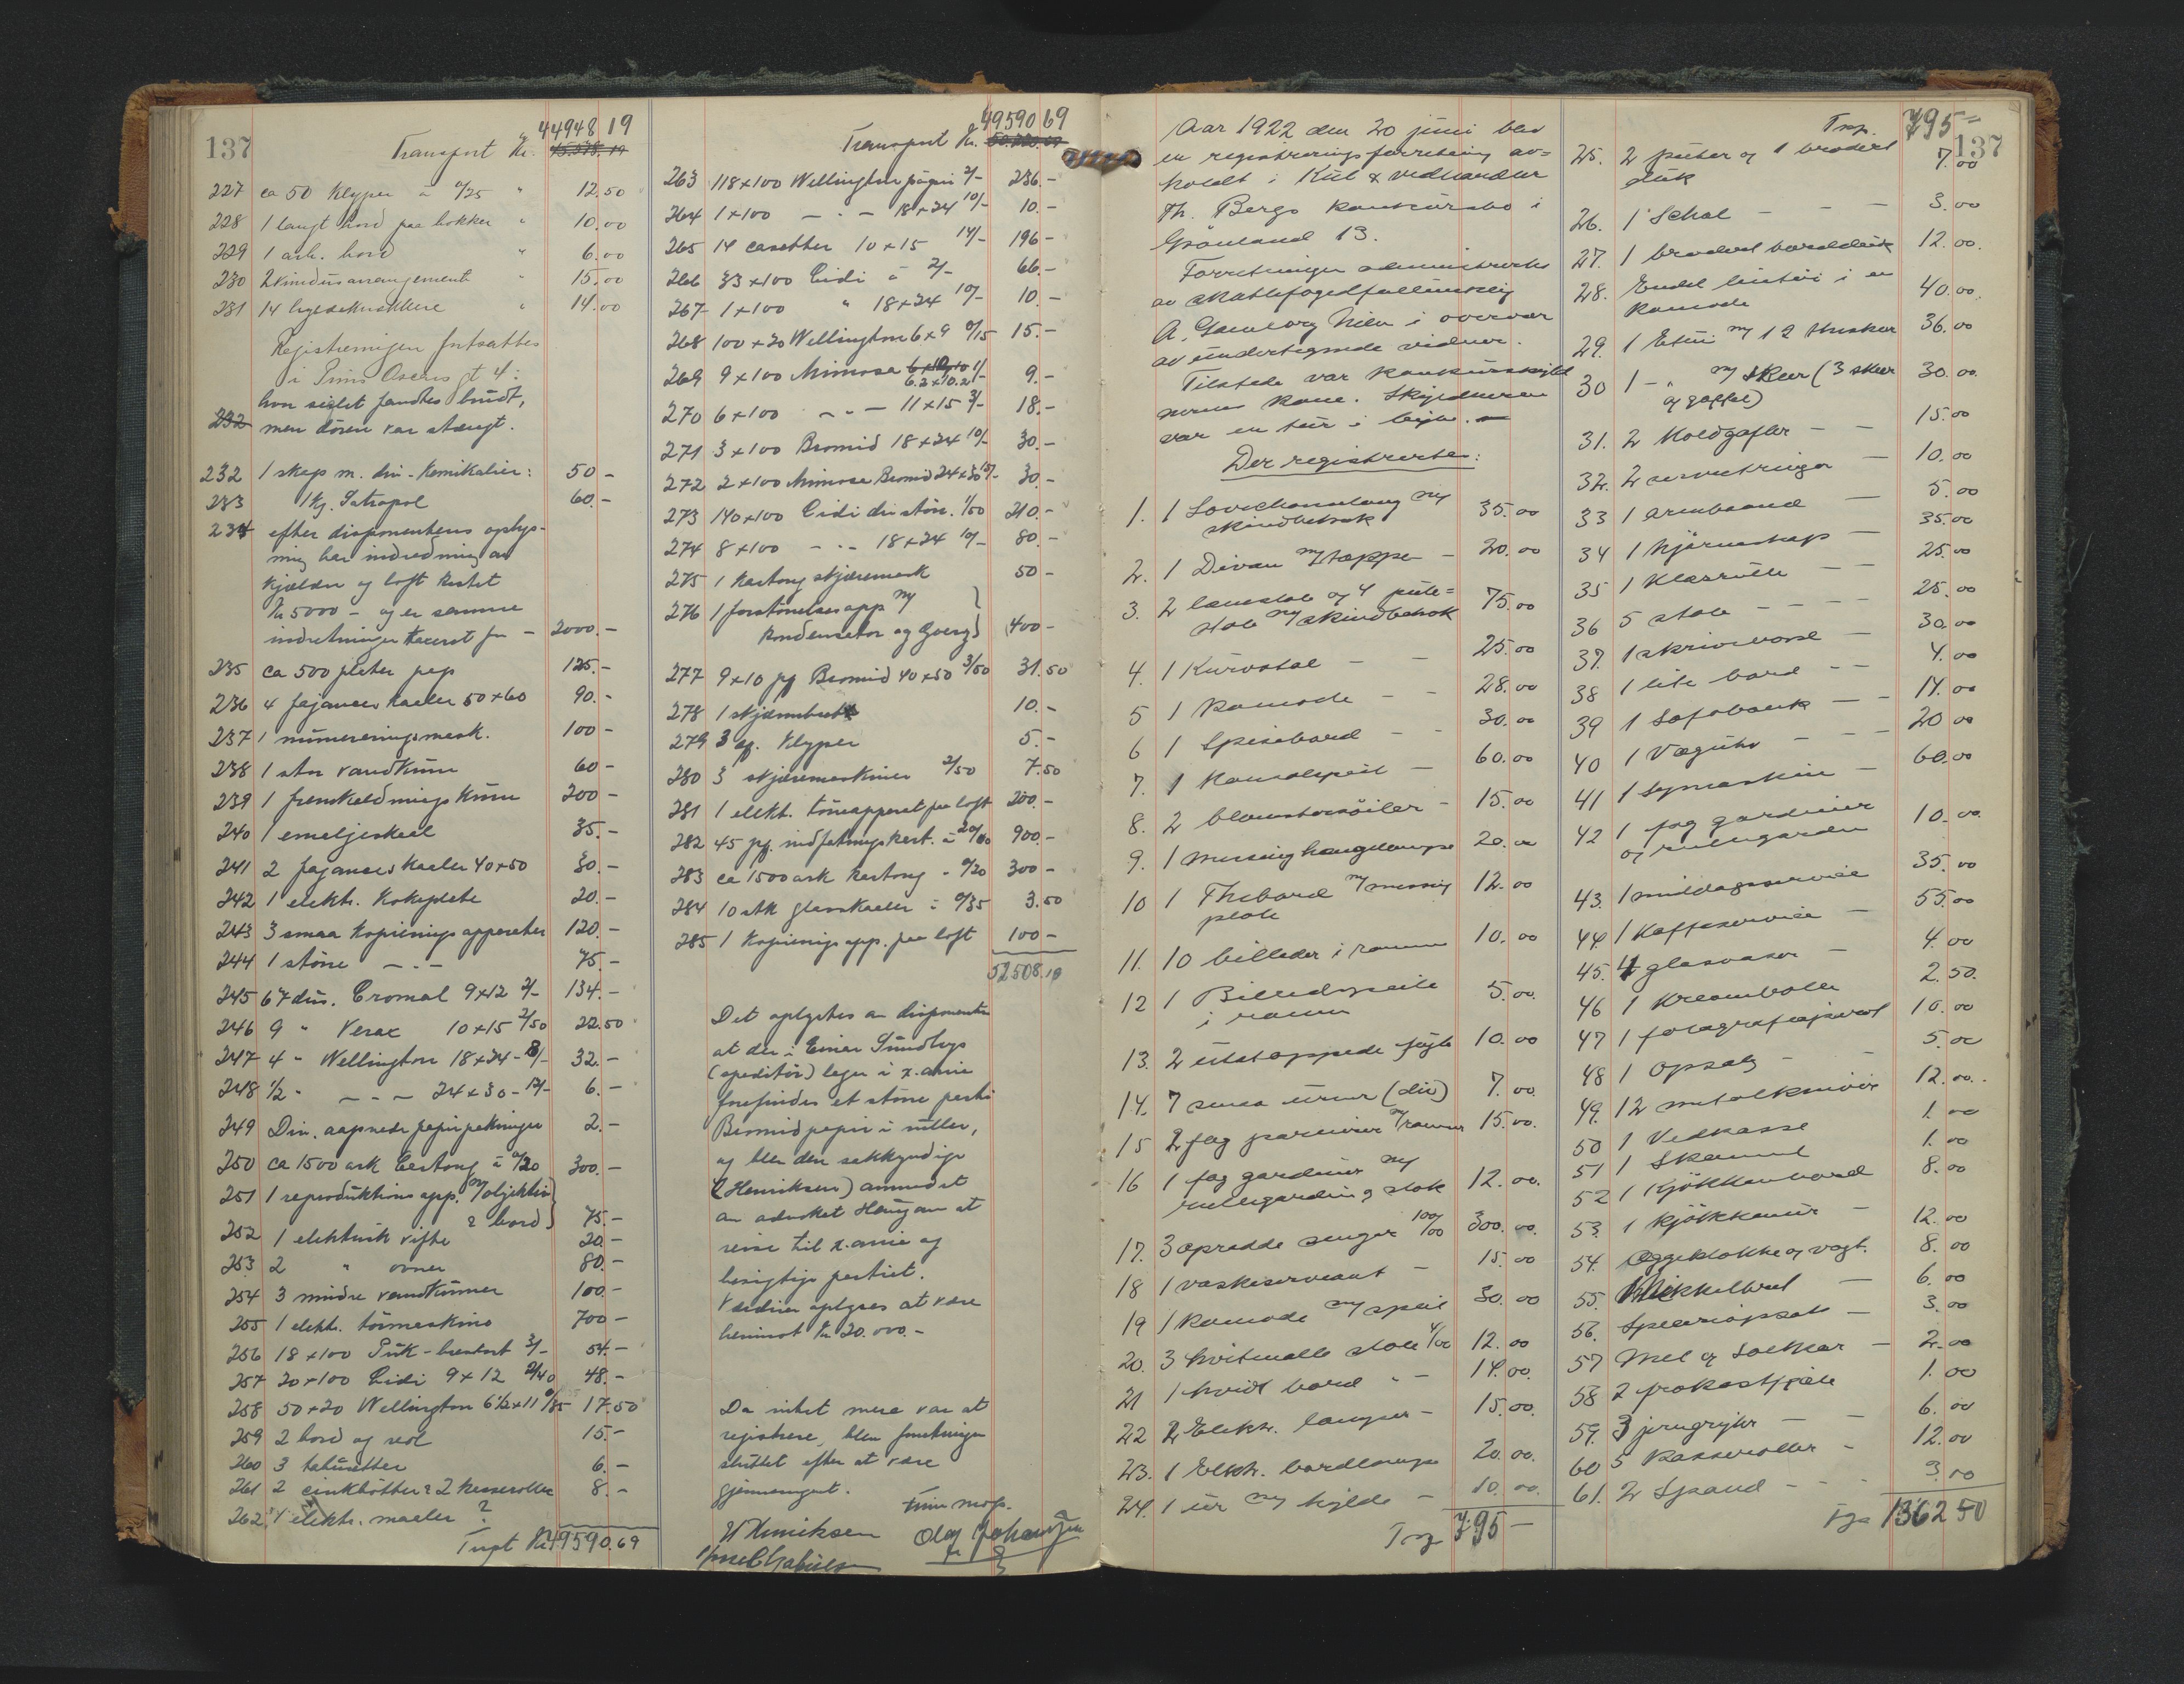 137
Transport Kr. 44948 19
227 ca 50 Klyper à 0/25 " 12.50
228 1 langt bord paa bokker " 10.00
229 1 arb. bord " 6.00
230 2 vindusarrangement " 15.00
231 14 " 14.00
Registreringen fortsattes
i Prins Oscars gt 4:
hvor seglet fandtes brudt,
men døren var stængt.
232 1 skap m. div. Kemikalier: 50 -
233 1 kg. Satrapol 60.-
234 efter disponentens oplys-
ning har indredning av
Kjælder og loft kostet
Kr 5000 - og er samme
indretninger taxeret for - 2000.-
235 ca 500 plater pap 125.-
236 4 fajance skaaler 50 x 60 90.-
237 1 numereringsmask. 100 -
238 1 stor vandkum 60 -
239 1 fremkaldnings kum 200 -
240 1 emaljeskaal 35.-
241 2 fajance skaaler 40 x 50 30.-
242 1 elektr. Kokeplate 20.-
243 3 smaa Kopieringsapparater 120.-
244 1 større - " - 75.-
245 67 dus. Cromal 9x12 2/- 134.-
246 9 " Verax 10 x 15 2/50 22.50
247 4 " Wellington 18 x 24 - 8/- 32.-
248 1/2 " - " - 24 x 30 - 12/- 6.-
249 Div. aapnede papirpakninger 2.-
250 ca 1500 ark Cartong à 0/20 300.-
251 1 reproduktions app. m/ objektiv
& bord 75.-
252 1 elektrisk vifte 20.-
253 2 " ovner 80.-
254 3 mindre vandkummer 100.-
255 1 elektr. tørmaskine 700 -
256 18 x 100 3/- 54.-
257 20 x 100 Cidi 9 x 12 2/40 48.-
258 50 x 20 Wellington 6 1/2 x 11 0/35 17.50
259 2 bord og reol 15.-
260 3 taburetter 6.-
261 2 sinkbøtter & 2 kasseroller 8.-
262 1 elektr. maaler ?
Trspt Kr 49590.69
Transport Kr. 49590 69
263 118 x 100 Wellington papir 2/- 236.-
264 1 x 100 - " - 18 x 24 10/- 10.-
265 14 casetter 10 x 15 14/- 196 -
266 33 x 100 Cidi à 2/- 66.-
267 1 x 100 " 18 x 24 10/- 10.-
268 100 x 20 Wellington 6 x 9 0/15 15.-
269 9 x 100 Mimosa 6.2 x 10.2 1/- 9.-
270 6 x 100 - " - 11 x 15 3/- 18.-
271 3 x 100 Bromid 18 x 24 10/- 30.-
272 2 x 100 Mimosa Bromid 24 x 30 15/- 30.-
273 140 x 100 Cidi div. størr. 1/50 210.-
274 8 x 100 - " - 18 x 24 10/- 80.-
275 1 kartong skjæremask 50 -
276 1 forstørrelsesapp m/
Kondensator og 400 -
277 9 x 10 pf Bromid 40 x 50 3/50 31.50
278 1 skjærebret 10.-
279 3 es. Klyper 5.-
280 3 skjæremaskiner 2/50 7.50
281 1 elektr. tørreapparat paa loft 200.-
282 45 pf. indfatningskart. à 20/00 900.-
283 ca 1500 ark kartong - 0/20 300 -
284 10 stk glasskaaler à 0/35 3.50
285 1 Kopierings app. paa loft 100 -
52508.19
Det oplystes av disponenten
at der i Einar Sundbys
(speditør) lager i X.ania
forefindes et større parti
Bromidpapir i ruller,
og blev den sakkyndige
(Henriksen) anmodet
av advokat Haugan at
reise til X.ania og
besigtige partiet.
Værdien oplyses at være
henimot Kr 20.000.-
Da intet mere var at
registrere, blev forretningen
sluttet efter at være
gjennemgaat.
H Henriksen Olaf Johansen
137
Aar 1922 den 20 juni blev
en registreringsforretning av=
holdt i Kul & vedhandler
Th. Bergs konkursbo i
Grønland 13.
Forretningen administrertes
av skattefogedfuldmægtig
A. i overvær
av undertegnede vidner.
Tilstede var konkursskyld
nerens kone. Skyldneren
var en tur i byen.
Der registrertes:
1. 1 m/
skindbetræk 35.00
2. 1 Divan m/ tæppe - 20.00
3. 2 lænestole og 4 pute=
stole m/ skindbetræk 75.00
4. 1 Kurvstol - - 25.00
5 1 Komode - - 28.00
6 1 Spisebord - - 30.00
7. 1 Konsolspeil - 60.00
8. 2 blomstersøiler - 15.00
9. 1 messing hængelampe 20.00
10 1 Thebord m/ messing
plate 12.00
11. 10 billeder i ramme 10.00
12 1 Billedspeile
i ramme 5.00
13. 2 utstoppede fugle 10.00
14. 7 smaa urner (div) 7.00
15 2 fag portierer m/ rammer 15.00
16 1 fag gardiner m/
rullegardin og stok 12.00
17. 3 opredde senger 100/00 300.00
18 1 vaskeservant - 15.00
19 1 komode m/ speil 30.00
20. 3 hvitmalte stole 4/00 12.00
21 1 hvidt bord " - 14.00
22 2 Elektr. lamper - 15.00
23. 1 Elektr. bordlampe 20.00
24. 1 ur m/ hylde - 10.00
Trsp 795 -
Trsp. 795 =
25. 2 puter og 1 brodert
duk 7.00
26. 1 Schal - - - 3.00
27. 1 brodert bordduk 12.00
28. Endel lintøi i en
komode 40.00
29. 1 Etui m/ 12 theskeer 36.00
30 1 - " m/ skeer (3 skeer
og gaffel) 30.00
31. 2 Koldgafler - - 15.00
32. 2 servietringer - 10.00
33 1 armbaand - 5.00
34 1 hjørneskap - 35.00
35 1 Klesrulle - - 25.00
36 5 stole - - - 25.00
37. 1 skrivebord - 30.00
38 1 lite bord - - 4.00
39 1 Sofabænk - - 14.00
40 1 Vægur - - - 20 00
41 1 Symaskine - 60.00
42 1 fag gardiner
og rullegardin 10.00
43. 1 middagsservice 35.00
44. 1 Kaffeservice - 55.00
45. 4 glasvaser - 4.00
46 1 Krambolle 2.50
47 1 fotografiapparat 10.00
48 1 Opsats - 5.00
49. 12 metalkniver 12.00
50 1 Vedkasse 1.00
51 1 Skammel 1.00
52 1 Kjøkkenbord 8.00
53. 1 Kjøkkenur - 12.00
54. Oggeklokke og vegt. 8.00
55. - 6.00
56. - 3.00
57 Mel og Saltkar - 2.00
58 2 frokostfjæle 1.00
59. 3 jerngryter - - 6.00
60 5 Kasseroller - 12.00
61. 2 Spand - - 3.00
Trsp 1362 50